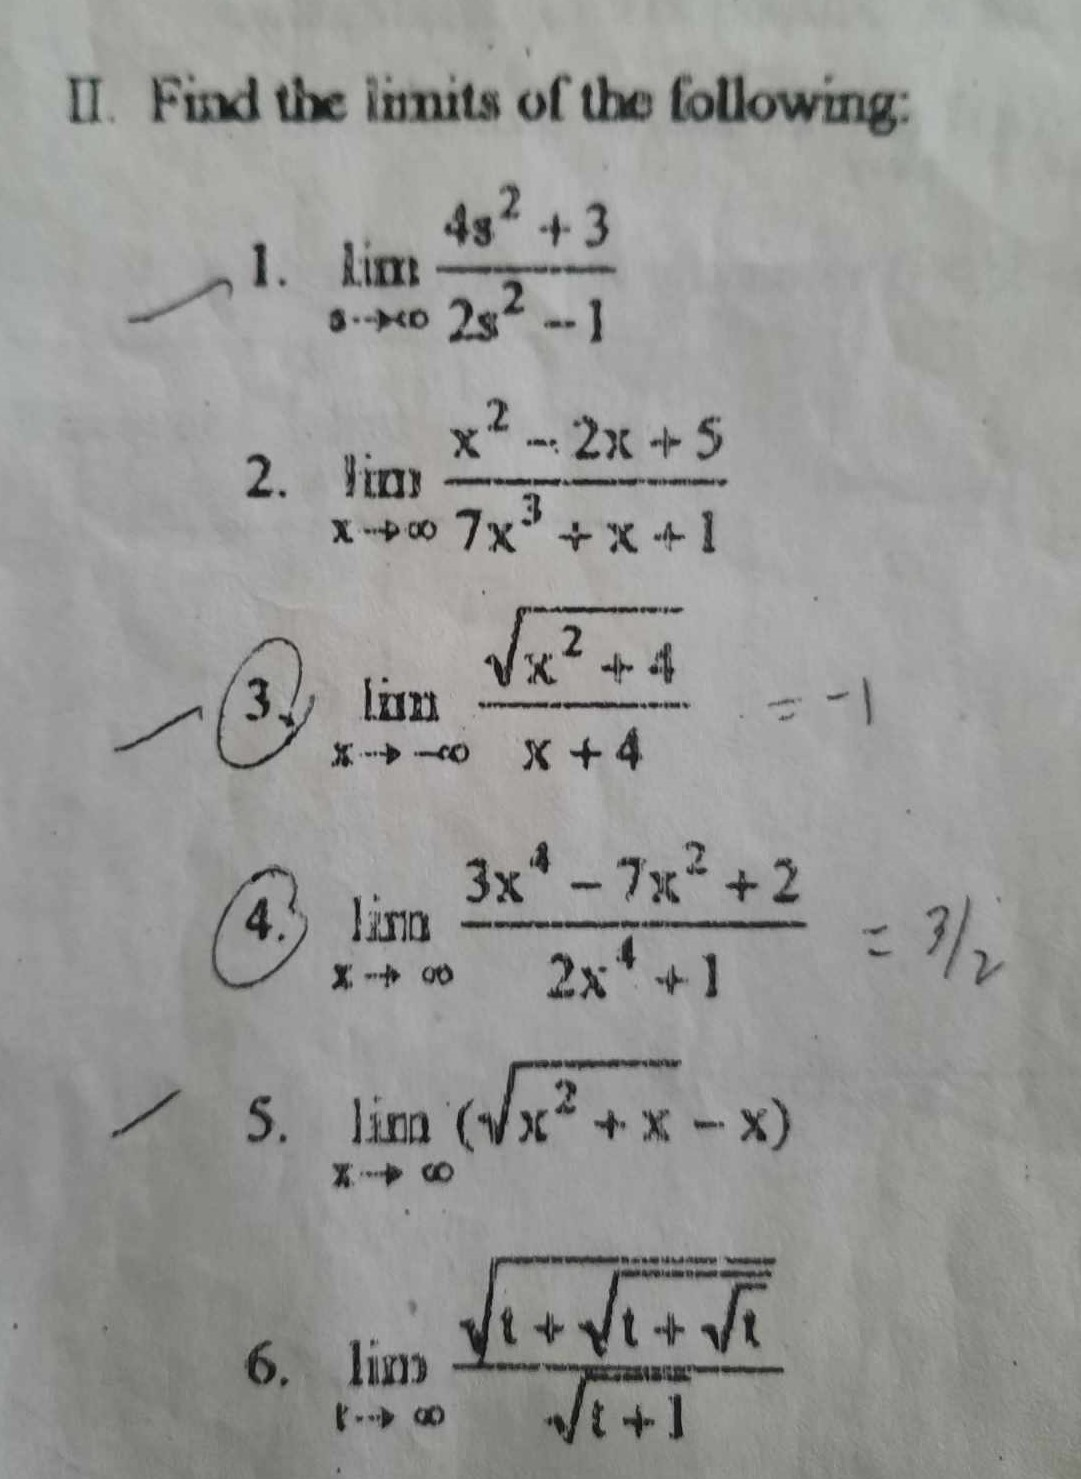 II. Find the limits of the following:
1. lim s→∞ (4s² + 3)/(2s² - 1)
2. lim x→∞ (x² - 2x + 5)/(7x³ + x + 1)
3. lim x→-∞ √(x² + 4)/(x + 4) = -1
4. lim x→∞ (3x⁴ - 7x² + 2)/(2x⁴ + 1) = 3/2
5. lim x→∞ (√(x² + x) - x)
6. lim t→∞ √(t + √(t + √t))/√(t + 1)